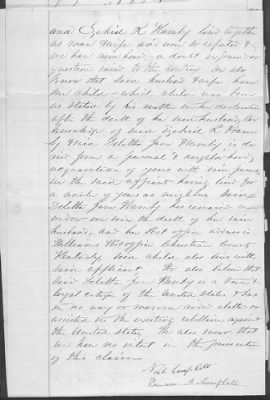 and Ezekiel R Hamby lived together
as man & wife and were so reputed &
we have never heard a doubt expressed or
question raised to the contrary. We also
know that said husband & wife have
one child - which child was born
as stated by his mother in her declaration
after the death of her said husband. Our
knowledge of said Ezekiel R Hamby
& said Zelitta Jane Hamby is de-
rived from a personal & neighborhood
acquaintance of years with said Jane,
we the said affiants having lived for
a number of years as neighbors. Said
Zelitta Jane Hamby has remained a
widow ever since the death of her said
husband, and her Post office address is
Christian County
Kentucky. Said child also lives with
said applicant. We also believe that
said Zelitta Jane Hamby is a true &
loyal citizen of the United States & has
in no way or manner aided abetted or
assisted in the existing rebellion against
the United States. We also swear that
we have no interest in the prosecution
of this claim
Campbell
A. Campbell